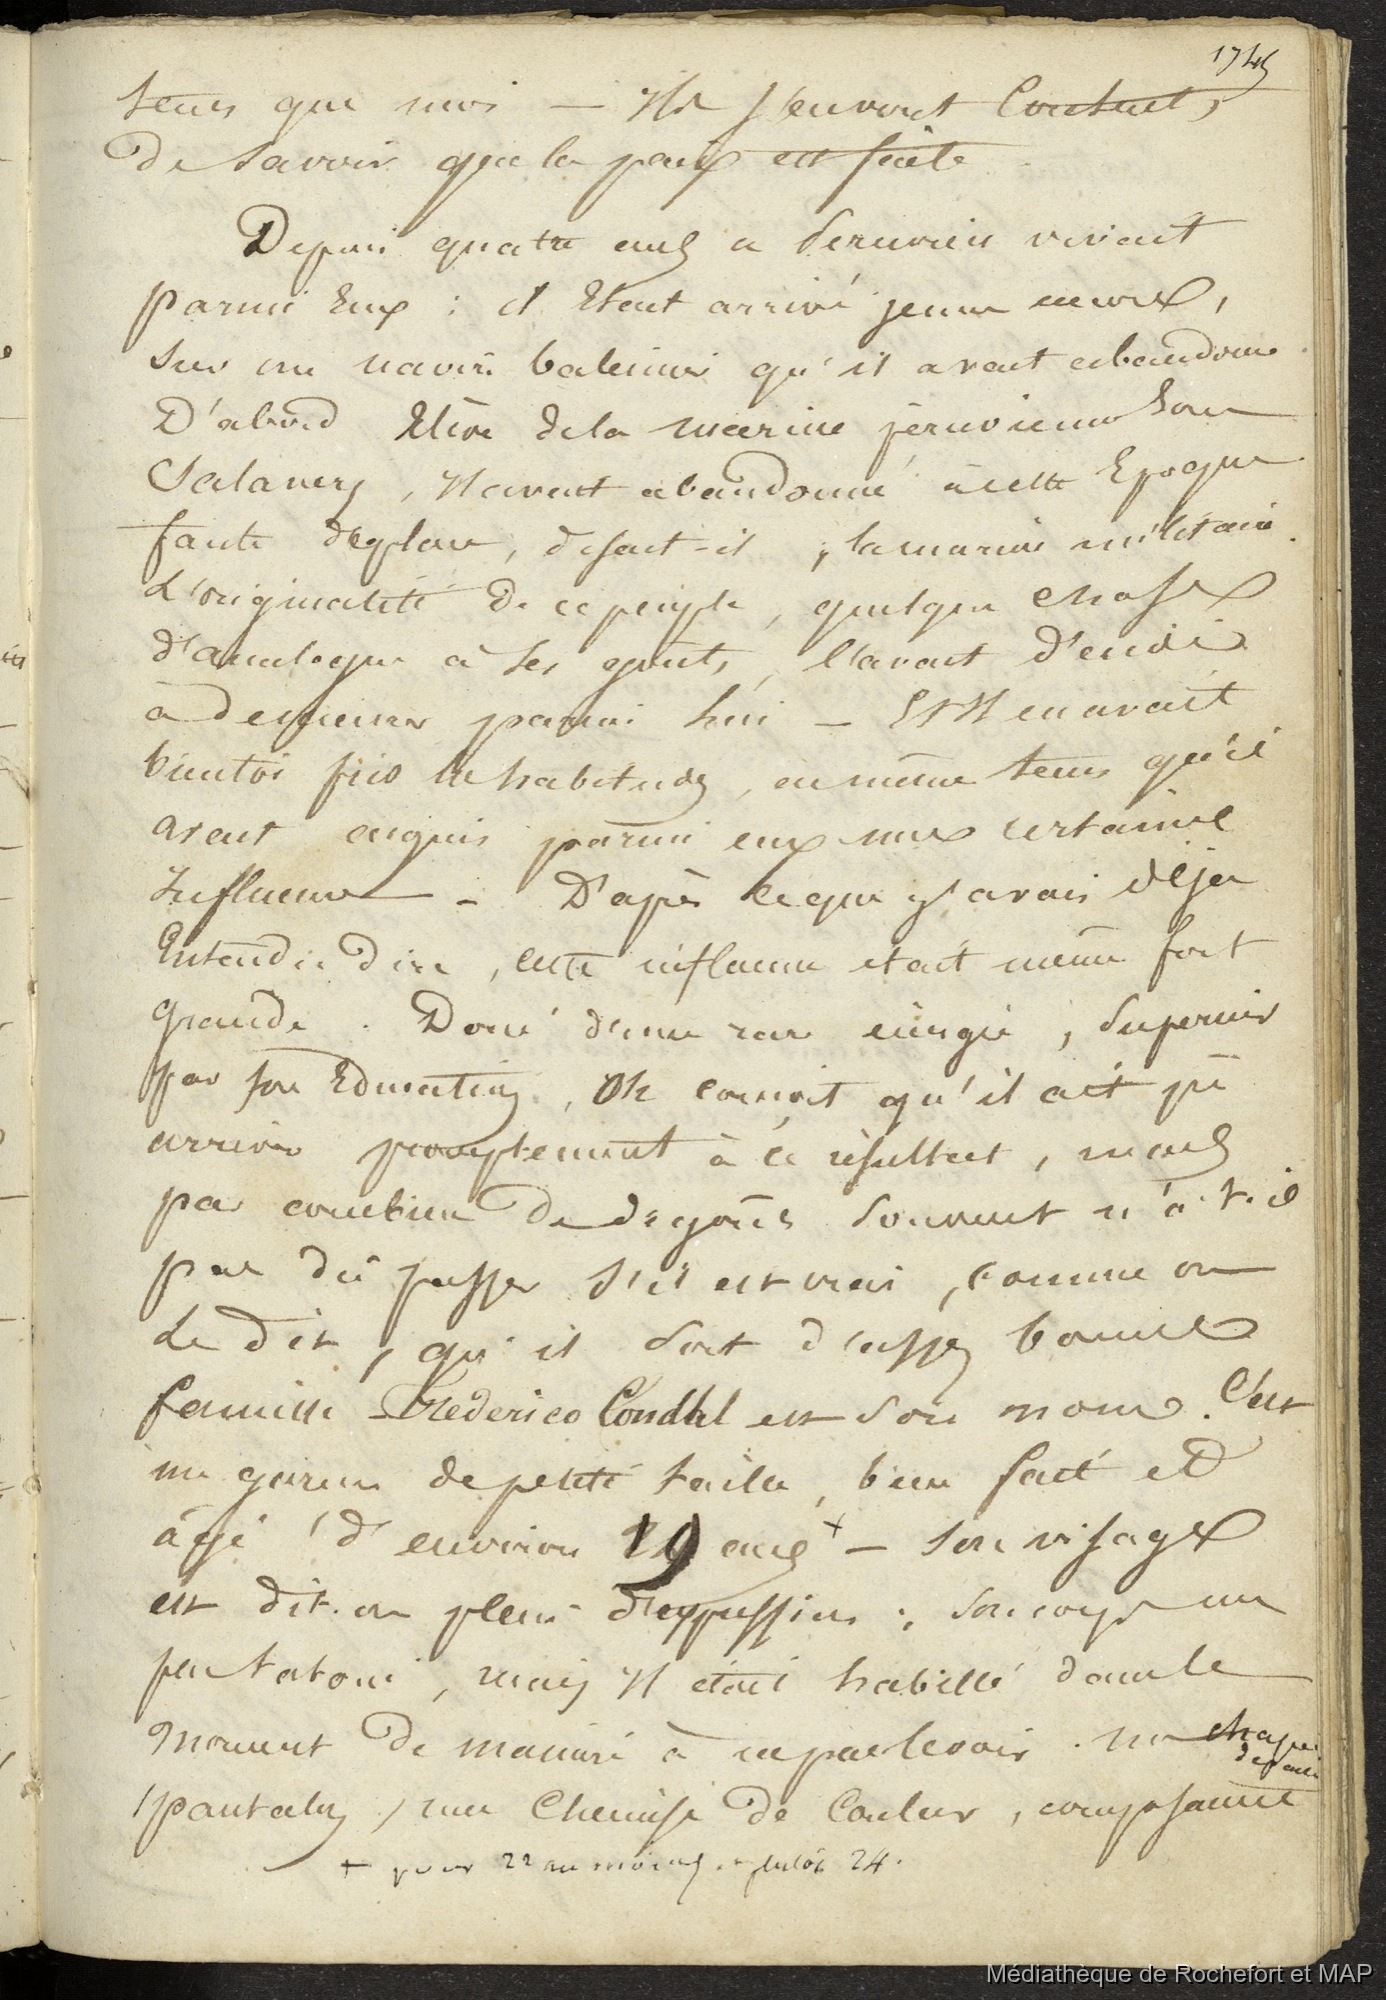 1745
tems que moi — Ils s'en vont contents,
de savoir que la paix est faite
Depuis quatre ans ce Peruvien vivait
parmi Eux : il Etait arrivé jeune encore,
sur un navire baleinier qu'il avait abandonné.
D'abord Elève de la marine péruvienne sous
Salavery, Il avait abandonné à cette Epoque
faute , disait-il, la marine militaire.
L'originalité de ce peuple, quelque chose
d'analogue à ses goûts, l'avait decidé
à demeurer parmi lui — Et Il en avait
bientôt pris les habitudes, en même tems qu'il
avait acquis parmi eux une certaine
Influence — . D'après ce que j'avais déja
Entendu dire, cette influence etait même fort
grande . Doué d'une rare énergie, Superieur
par son Education, On conçoit qu'il ait pû
arriver promptement à ce résultat, mais
par combien de dégoûts souvent n'a-t-il
pas dû passer s'il est vrai, comme on
le dit, qu'il sort d'assez bonne
famille — Frederico Condhel est son nom. C'est
un garçon de petite taille, bien fait et
âgé d'environ 19 ans + — Son visage
est dit-on plein d'expression ; son corps un
peu tatoué, mais Il était habillé dans le
moment de manière à ne pas le voir . un chapeau
de paille
pantalon, une chemise de couleur, composaient
+ pour 22 au moins et plutôt 24.
Médiathèque de Rochefort et MAP